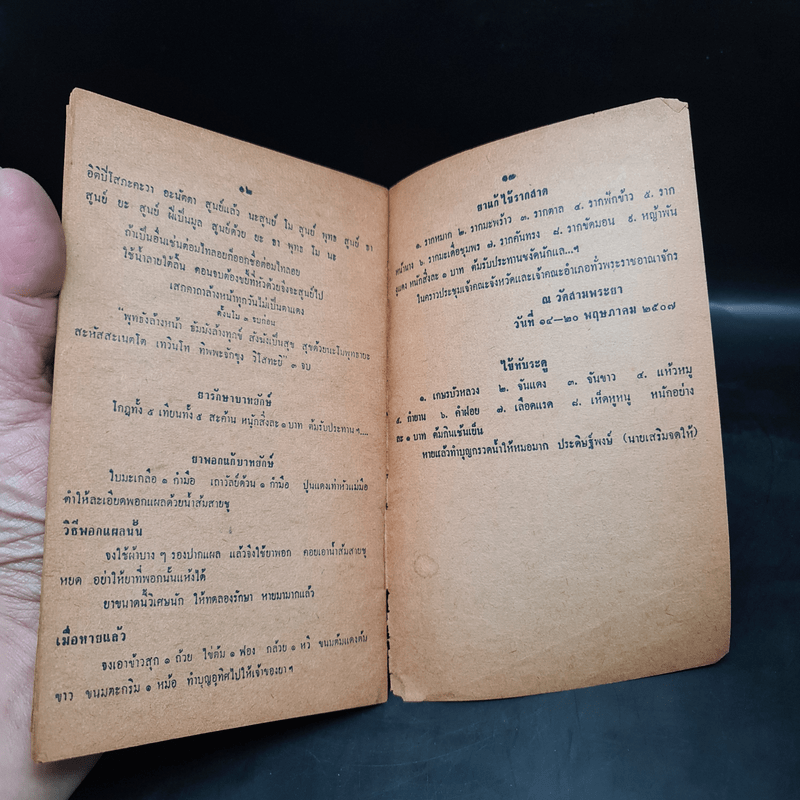 ๑๒
อิติปิโสภะคะวา อะนัตตา สูนย์แล้ว นะสูนย์ โม สูนย์ พุทธ สูนย์ ธา
สูนย์ ยะ สูนย์ ฝีเป็นมูล สูนย์ด้วย ยะ ธา พุทธ โม นะ
ถ้าเป็นอื่นเช่นต่อมไทลอยก็ออกชื่อต่อมไทลอย
ใช้น้ำลายใต้ลิ้น ตอนจบต้องขยี้ที่หัวด้วยจึงจะสูนย์ไป
เสกคาถาล้างหน้าทุกวันไม่เป็นตาแดง
ตั้งนโม ๓ จบก่อน
"พุทธังล้างหน้า ธัมมังล้างทุกข์ สังฆังเป็นสุข สุขด้วยนะโมพุทธายะ
สะหัสสะเนตโต เทวินโท ทิพพะจักขุง วิโสทะยิ" ๓ จบ
ยารักษาบาทยักษ์
โกฎทั้ง ๕ เทียนทั้ง ๕ สะค้าน หนักสิ่งละ ๑ บาท ต้มรับประทาน ฯ....
ยาพอกแก้บาทยักษ์
ใบมะเกลือ ๑ กำมือ เถาวัลย์ด้วน ๑ กำมือ ปูนแดงเท่าหัวแม่มือ
ตำให้ละเอียดพอกแผลด้วยน้ำส้มสายชู
วิธีพอกแผลนั้น
จงใช้ผ้าบาง ๆ รองปากแผล แล้วจึงใช้ยาพอก คอยเอาน้ำส้มสายชู
หยด อย่าให้ยาที่พอกนั้นแห้งได้
ยาขนาดนี้วิเศษนัก ให้ทดลองรักษา หายมามากแล้ว
เมื่อหายแล้ว
จงเอาข้าวสุก ๑ ถ้วย ไข่ต้ม ๑ ฟอง กล้วย ๑ หวี ขนมต้มแดงต้ม
ขาว ขนมตะกริม ๑ หม้อ ทำบุญอุทิศไปให้เจ้าของยา ฯ
๑๓
ยาแก้ไข้รากสาด
๑. รากหมาก ๒. รากมะพร้าว ๓. รากตาล ๔. รากฟักข้าว ๕. ราก
หน้านาง ๖. รากมะเดื่อชุมพร ๗. รากคันทรง ๘. รากขัดมอน ๙. หญ้าพัน
งูแดง หนักสิ่งละ ๑ บาท ต้มรับประทานชงัดนักแล...ฯ
ในคราวประชุมเจ้าคณะจังหวัดและเจ้าคณะอำเภอทั่วพระราชอาณาจักร
ณ วัดสามพระยา
วันที่ ๑๔—๒๐ พฤษภาคม ๒๕๐๗
ไข้ทับระดู
๑. เกษรบัวหลวง ๒. จันแดง ๓. จันขาว ๔. แห้วหมู
๕. กำยาน ๖. คำฝอย ๗. เลือดแรด ๘. เห็ดหูหนู หนักอย่าง
ละ ๑ บาท ต้มกินเช้นเย็น
หายแล้วทำบุญกรวดน้ำให้หมอมาก ประดิษฐ์พงษ์ (นายเสริมจดให้)